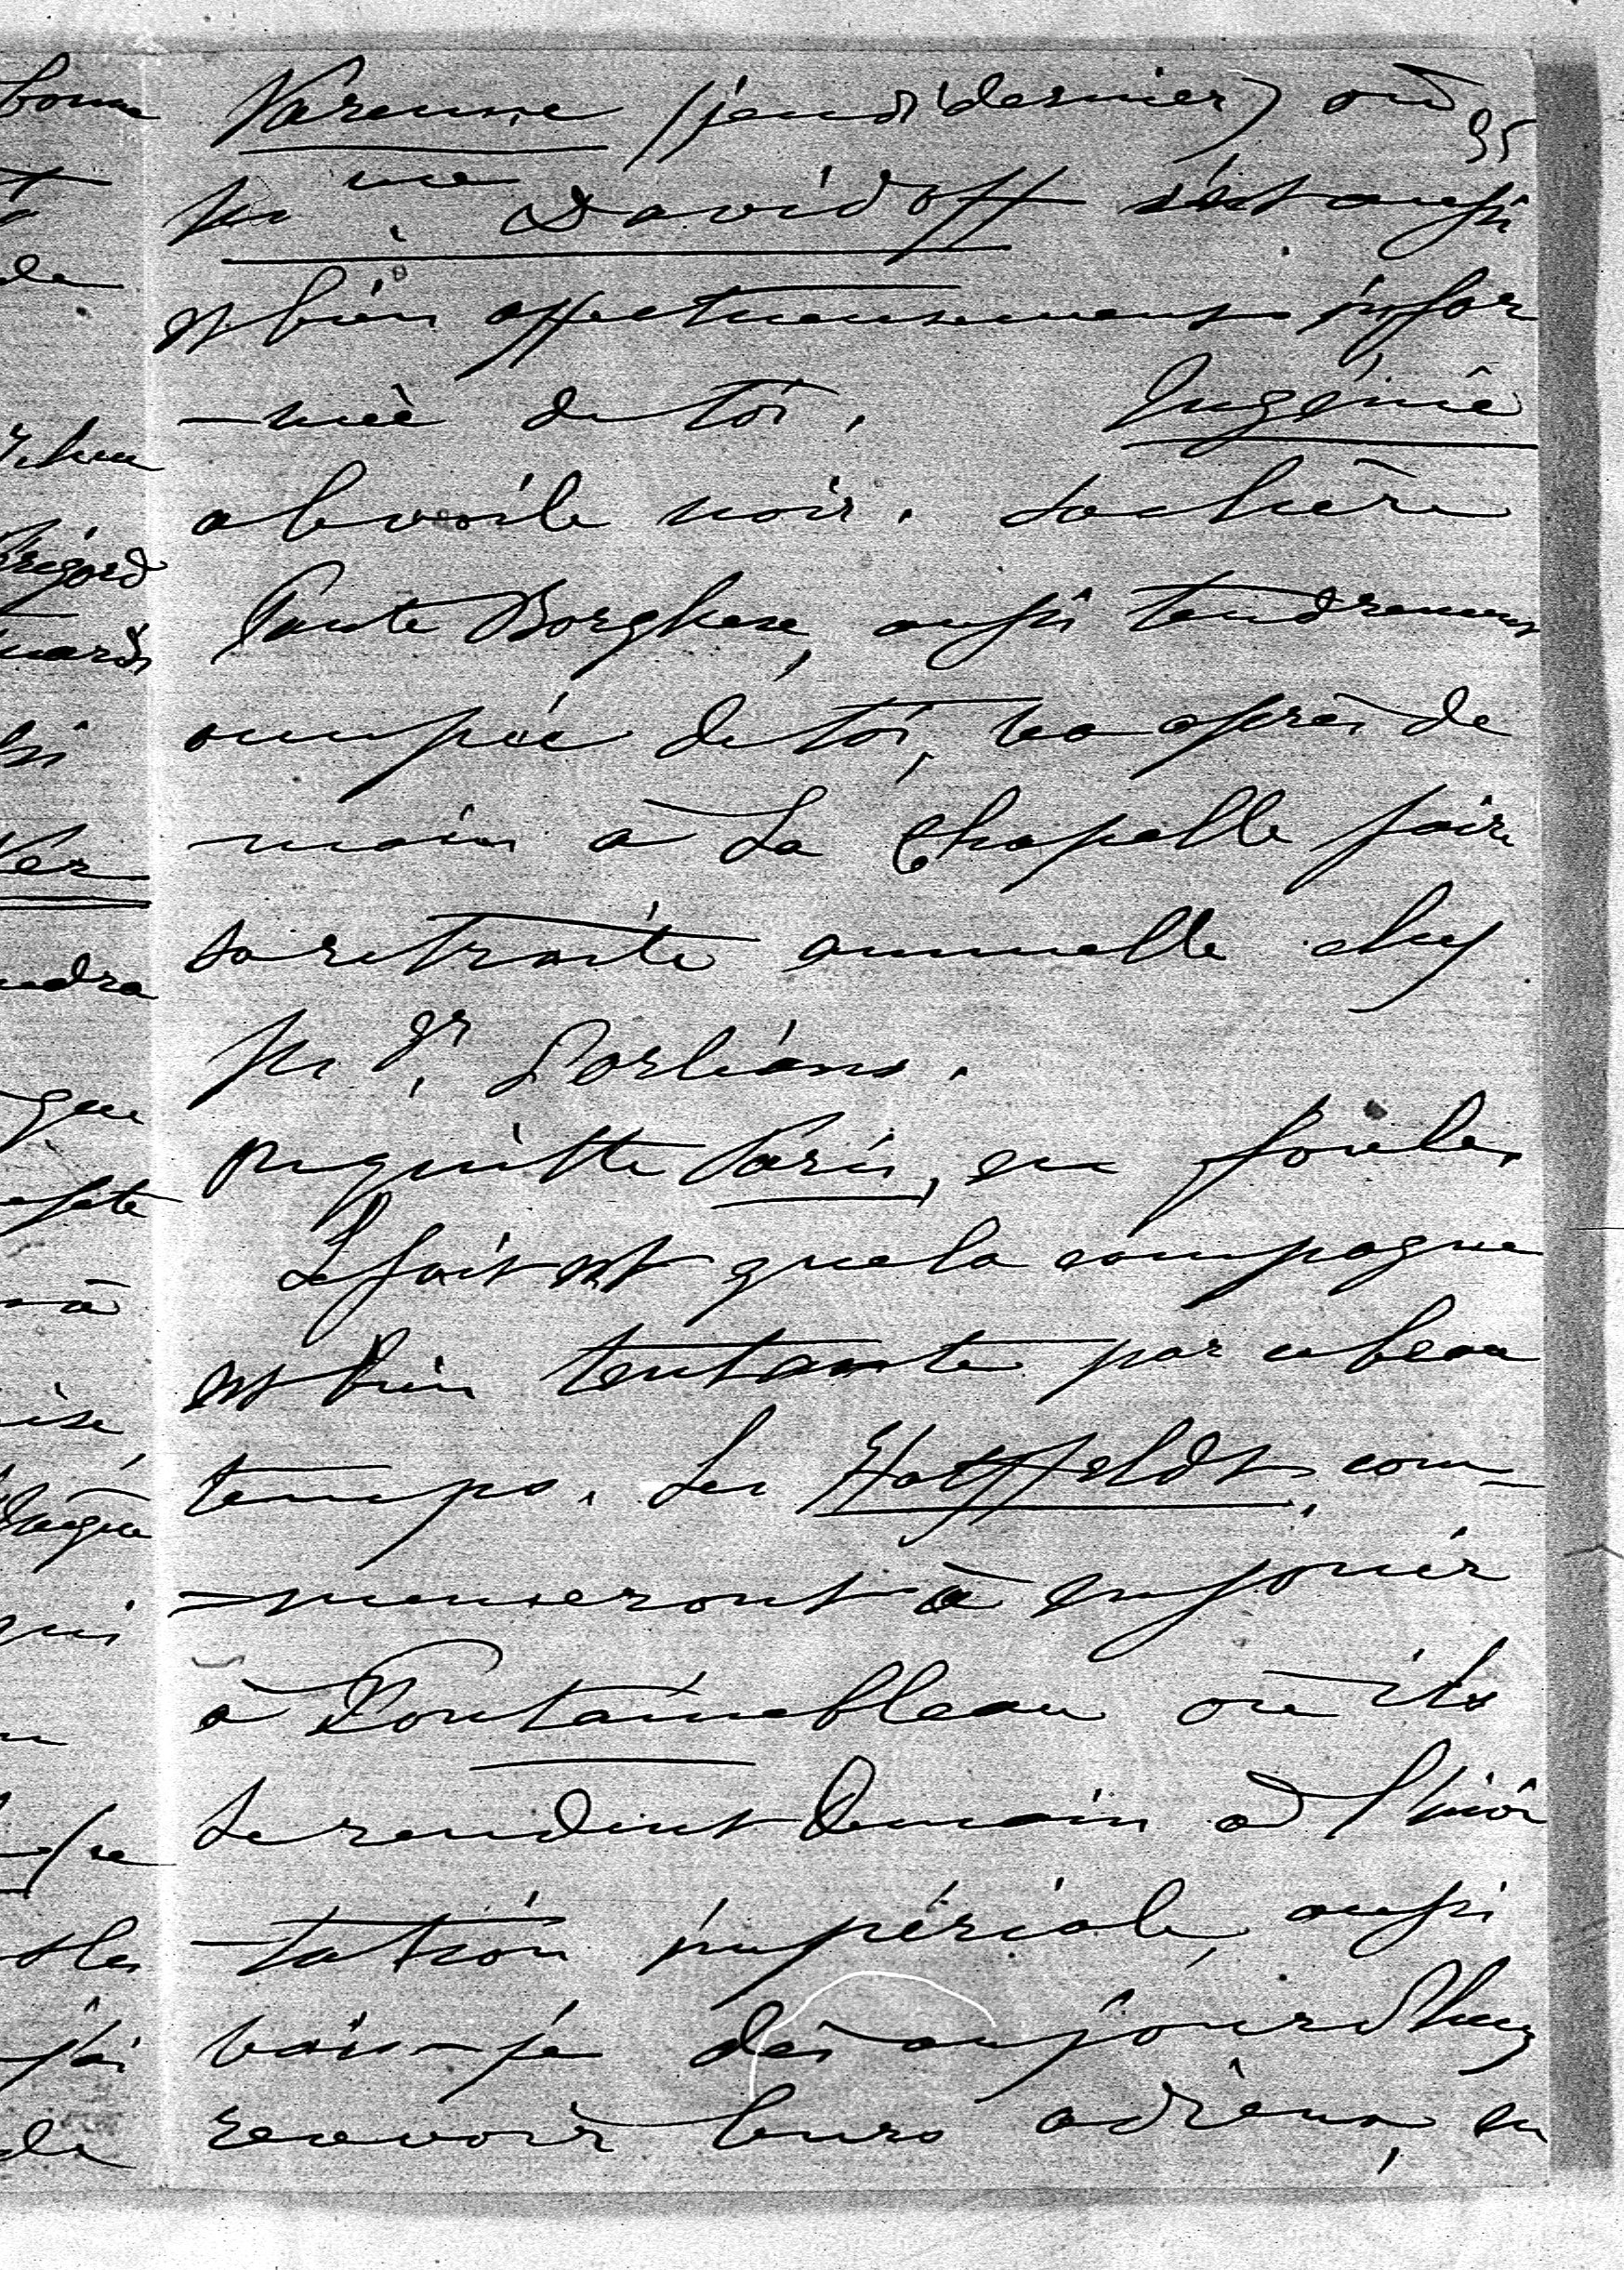 Varenne (jeudi dernier) où
95
Mme Davidoff s'est aussi
et bien affectueusement infor
-mée de toi. Eugénie
a le voile noir. La chère
Tante Borghese, aussi tendrement
occupée de toi, va après de
main à La Chapelle faire
sa retraite annuelle chez
Mgr. D'orléans.
On quitte Paris, en foule,
Le fait est que la campagne
est bien tentante par ce beau
temps. Les Hatzfeldt, com-
-menceront à en jouir
à Fontainebleau où ils
se rendent demain à l'invi
-tation impériale, aussi
vais-je dès aujourd'huy
recevoir leurs adieux, en